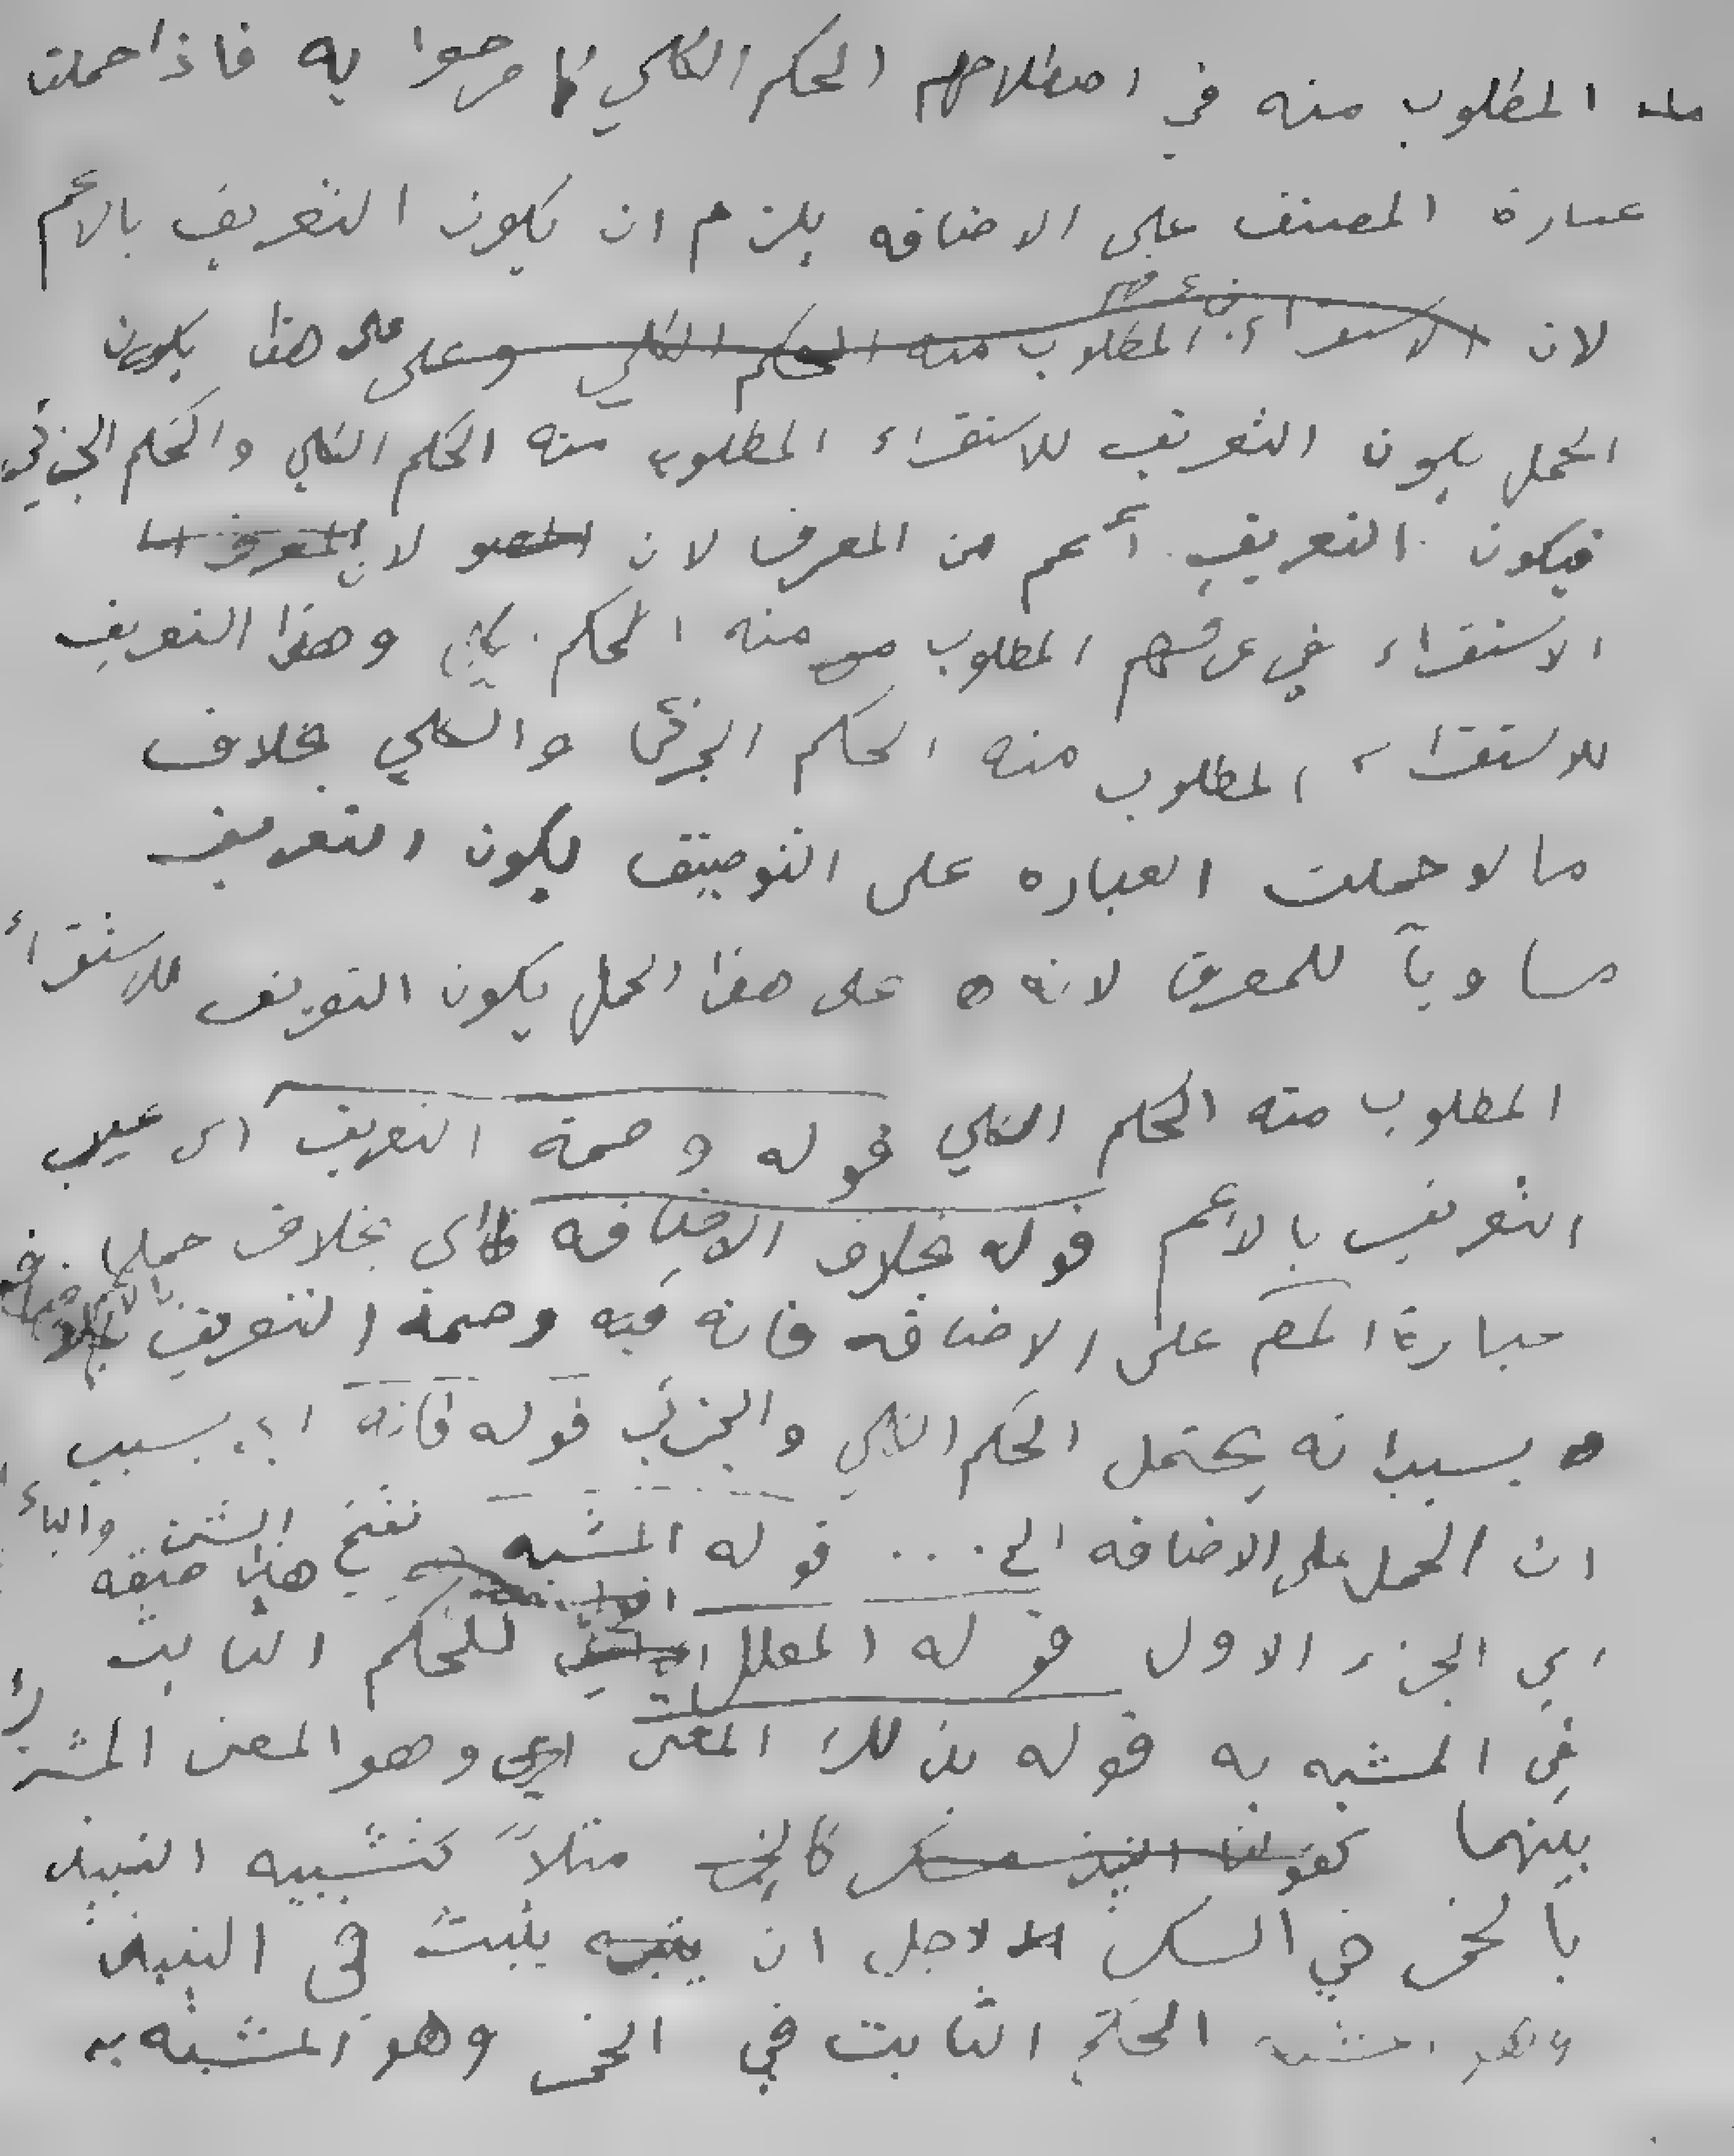 المطلوب منه في اصطلاحهم الحكم الكلي كما صرحوا به فاذا حملت
عبارة المصنف على الاضافه يلزم ان يكون التعريف بالاعم
لان الاستقراء المطلوب منه الحكم الكلي وعلى على هذا يكون
الحمل يكون التعريف للاستقراء المطلوب منه الحكم الكلي والحكم الجزئي
فيكون التعريف أعم من المعرف لان لان المعرف
الاستقراء في عرفهم المطلوب منه الحكم كلي وهذا التعريف
للاستقراء المطلوب منه الحكم الجزئي والكلي بخلاف
ما لو حملت العباره على التوصيف يكون التعريف
مساوياً للمعرف لانه على هذا الحمل يكون التعريف للاستقراء
المطلوب منه الحكم الكلي قوله وصمة التعريف اى عيب
التعريف بالاعم قوله بخلاف الاضافه اى بخلاف حمل
عبارة المصم على الاضافه فانه فيه وصمة التعريف بالاعم
بسبب انه يحتمل الحكم الكلي والجزئي قوله فانه اي بسبب
ان الحمل على الاضافه الخ... قوله المشبه بفتح الشين والباء
هذا صفة
اي الجزء الاول قوله المعلل للحكم الثابت
في المشبه به قوله بذلك المعنى اى وهو المعنى المشترك
بينهما كقولنا النبيذ مسكر كالخمر مثلاً كتشبيه النبيذ
بالخمر في السكر لاجل ان يثبت في النبيذ
وهو المشبه الحكم الثابت في الخمر وهو المشبه به